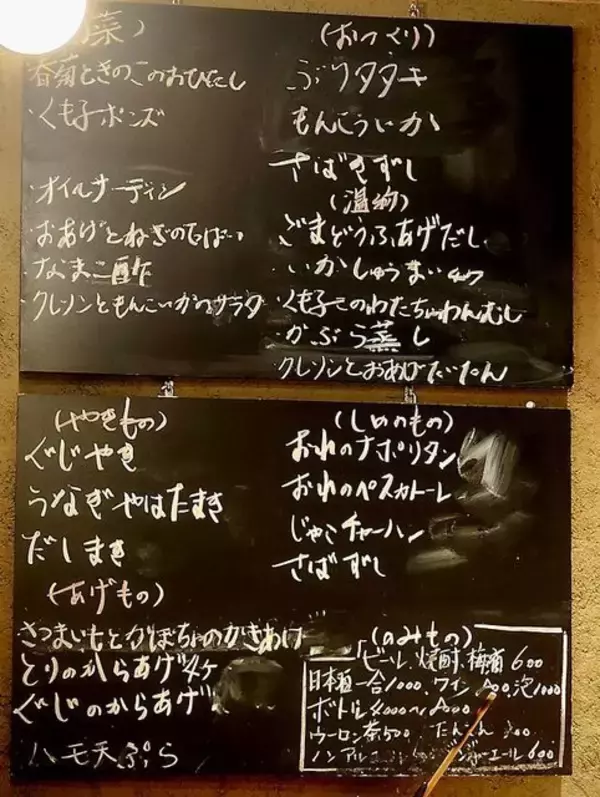 菜)
春菊ときのこのおひたし
・くも子ポンズ
・オイルサーディン
・おあげとねぎのてっぱい
・なまこ酢
・クレソンともんこいかのサラダ
(おつくり)
ぶりタタキ
もんごういか
さばきずし
(温物)
ごまどうふあげだし
・いかしゅうまい4ケ
・くも子このわたちゃわんむし
・かぶら蒸し
・クレソンとおあげたいたん
(やきもの)
ぐじやき
うなぎやはたまき
だしまき
(あげもの)
さつまいもとかぼちゃのかきあげ
とりのからあげ4ケ
ぐじのからあげ
ハモ天ぷら
(しめのもの)
おれのナポリタン
おれのペスカトーレ
じゃこチャーハン
さばずし
(のみもの)
ビール、焼酎、梅酒 600
日本酒一合1000、ワイン 泡1000
ボトル4000〜
ウーロン茶500
ノンアル ジンジャーエール600